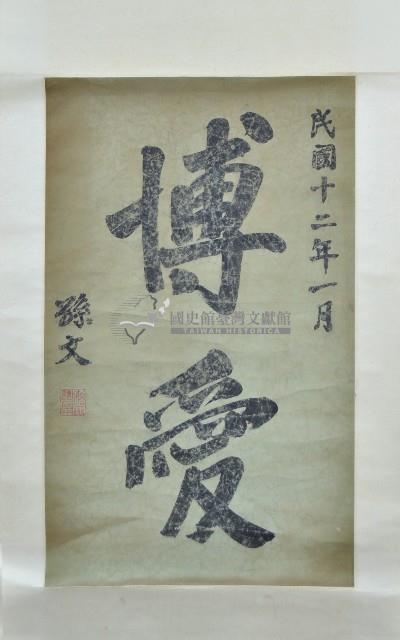 民國十二年一月
博愛
孫文
國史館臺灣文獻館
TAIWAN HISTORICA